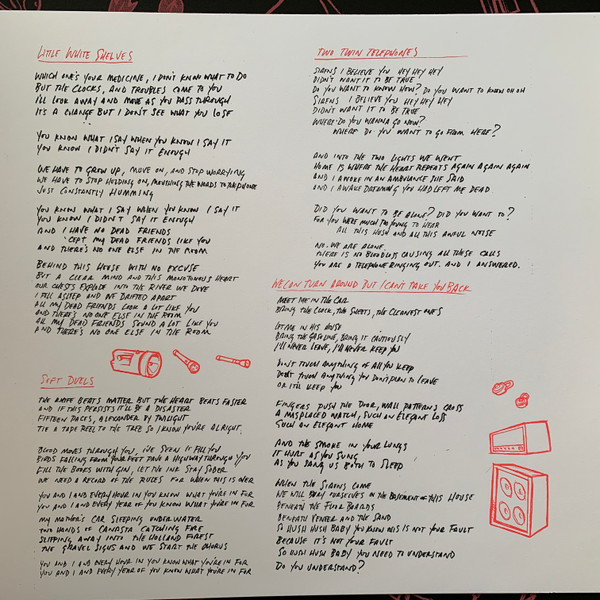 LITTLE WHITE SHELVES
WHICH ONE'S YOUR MEDICINE, I DON'T KNOW WHAT TO DO
BUT THE CLOCKS, AND TROUBLES COME TO YOU
I'LL LOOK AWAY AND MOVE AS YOU PASS THROUGH
IT'S A CHANGE BUT I DON'T SEE WHAT YOU LOSE
YOU KNOW WHAT I SAY WHEN YOU KNOW I SAY IT
YOU KNOW I DIDN'T SAY IT ENOUGH
WE HAVE TO GROW UP, MOVE ON, AND STOP WORRYING,
WE HAVE TO STOP HOLDING ON, MOUTHING THE WORDS TO THE
JUST CONSTANTLY HUMMING
YOU KNOW WHAT I SAY WHEN YOU KNOW I SAY IT
YOU KNOW I DIDN'T SAY IT ENOUGH
AND I HAVE NO DEAD FRIENDS
'CEPT MY DEAD FRIENDS LIKE YOU
AND THERE'S NO ONE ELSE IN THE ROOM
BEHIND THIS HOUSE WITH NO EXCUSE
BUT A CLEAR MIND AND THIS MONOTONOUS HEART
OUR CHESTS EXPLODE INTO THE RIVER WE DOVE
I FELL ASLEEP AND WE DRIFTED APART
ALL MY DEAD FRIENDS LOOK A LOT LIKE YOU
AND THERE'S NO ONE ELSE IN THE ROOM
ALL MY DEAD FRIENDS SOUND A LOT LIKE YOU
AND THERE'S NO ONE ELSE IN THE ROOM
SOFT DUELS
THE KNIFE BEATS MATTER BUT THE HEART BEATS FASTER
AND IF THIS PERSISTS IT'LL BE A DISASTER
FIFTEEN PACES, ALEXANDER BY TWILIGHT
TIE A TAPE REEL TO THE TREE SO I KNOW YOU'RE ALRIGHT.
BLOOD MOVES THROUGH YOU, I'VE SEEN IT FILL YOU
BIRDS FALLING FROM YOUR FEET PAVE A HIGHWAY THROUGH YOU
FILL THE BOOKS WITH GIN, LET THE INK STAY SOBER
WE NEED A RECORD OF THE RULES FOR WHEN THIS IS OVER
YOU AND I AND EVERY HOUR IN YOU KNOW WHAT YOU'RE IN FOR
YOU AND I AND EVERY YEAR OF YOU KNOW WHAT YOU'RE IN FOR
MY MOTHER'S CAR SLEEPING UNDERWATER
TWO HANDS OF CANASTA CATCHING FIRE
SLIPPING AWAY INTO THE HOLLAND FOREST
THE GRAVEL SIGHS AND WE START THE CHORUS
YOU AND I AND EVERY HOUR IN YOU KNOW WHAT YOU'RE IN FOR
YOU AND I AND EVERY YEAR OF YOU KNOW WHAT YOU'RE IN FOR
TWO TWIN TELEPHONES
SIRENS I BELIEVE YOU HEY HEY HEY
DIDN'T WANT IT TO BE TRUE
DO YOU WANT TO KNOW HOW? DO YOU WANT TO KNOW OH OH
SIRENS I BELIEVE YOU HEY HEY HEY
DIDN'T WANT IT TO BE TRUE
WHERE DO YOU WANNA GO NOW?
WHERE DO YOU WANT TO GO FROM HERE?
AND INTO THE TWO LIGHTS WE WENT
HOME IS WHERE THE HEART REPEATS AGAIN AGAIN AGAIN
AND I AWOKE IN AN AMBULANCE SHE SAID
AND I AWAKE DREAMING YOU HAD LEFT ME DEAD
DID YOU WANT TO BE ALONE? DID YOU WANT TO?
FOR YOU WERE MUCH TOO YOUNG TO HEAR
ALL THIS HISH AND ALL THIS AWFUL NOISE
NO. WE ARE ALONE.
THERE IS NO BLOODLOSS CAUSING ALL THESE CALLS
YOU ARE A TELEPHONE RINGING OUT. AND I ANSWERED.
WE CAN TURN AROUND BUT I CAN'T TAKE YOU BACK
MEET ME IN THE CAR
BRING THE CLOCK, THE SHEETS, THE CLEANEST ONES
LET ME IN HIS HOUSE
BRING THE GASOLINE, BRING IT CAUTIOUSLY
I'LL NEVER LEAVE, I'LL NEVER KEEP YOU
DON'T TOUCH ANYTHING OR I'LL KEEP YOU
DON'T TOUCH ANYTHING YOU DON'T PLAN TO LEAVE
OR IT'LL KEEP YOU
FINGERS PUSH THE DOOR, WALL PATTERNS CROSS
A MISPLACED MATCH, SUCH AN ELEGANT LOSS
SUCH AN ELEGANT HOME
AND THE SMOKE IN YOUR LUNGS
IT HURT AS YOU SUNG
AS YOU SANG US BOTH TO SLEEP
WHEN THE SIRENS COME
WE WILL BURY OURSELVES IN THE BASEMENT OF THIS HOUSE
BENEATH THE FLOOR BOARDS
BENEATH VENEER AND THE SAND
SO HUSH HUSH BABY YOU KNOW THIS IS NOT YOUR FAULT
BECAUSE IT'S NOT YOUR FAULT
SO HUSH HUSH BABY YOU NEED TO UNDERSTAND
DO YOU UNDERSTAND?